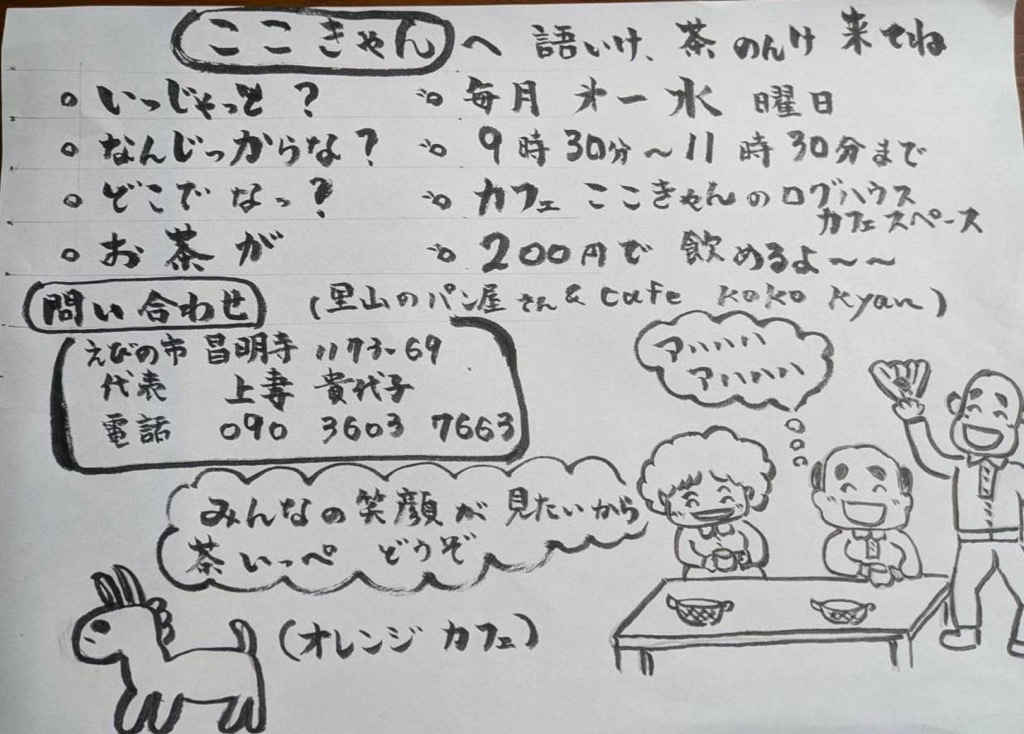 ここきゃんへ 語いけ、茶のんけ 来てね
○ いっじゃっと? 〃○ 毎月 オ一水曜日
○ なんじっからな? 〃○ 9時30分〜11時30分まで
○ どこでなっ? 〃○ カフェ ここきゃんのログハウス
カフェスペース
○ お茶が 〃○ 200円で 飲めるよ〜〜
問い合わせ (里山のパン屋さん & cafe koko kyan)
えびの市 昌明寺 1173-69
代表 上妻 貴代子
電話 090 3603 7663
アハハハ
アハハハ
みんなの笑顔が見たいから
茶いっぺ どうぞ
(オレンジカフェ)